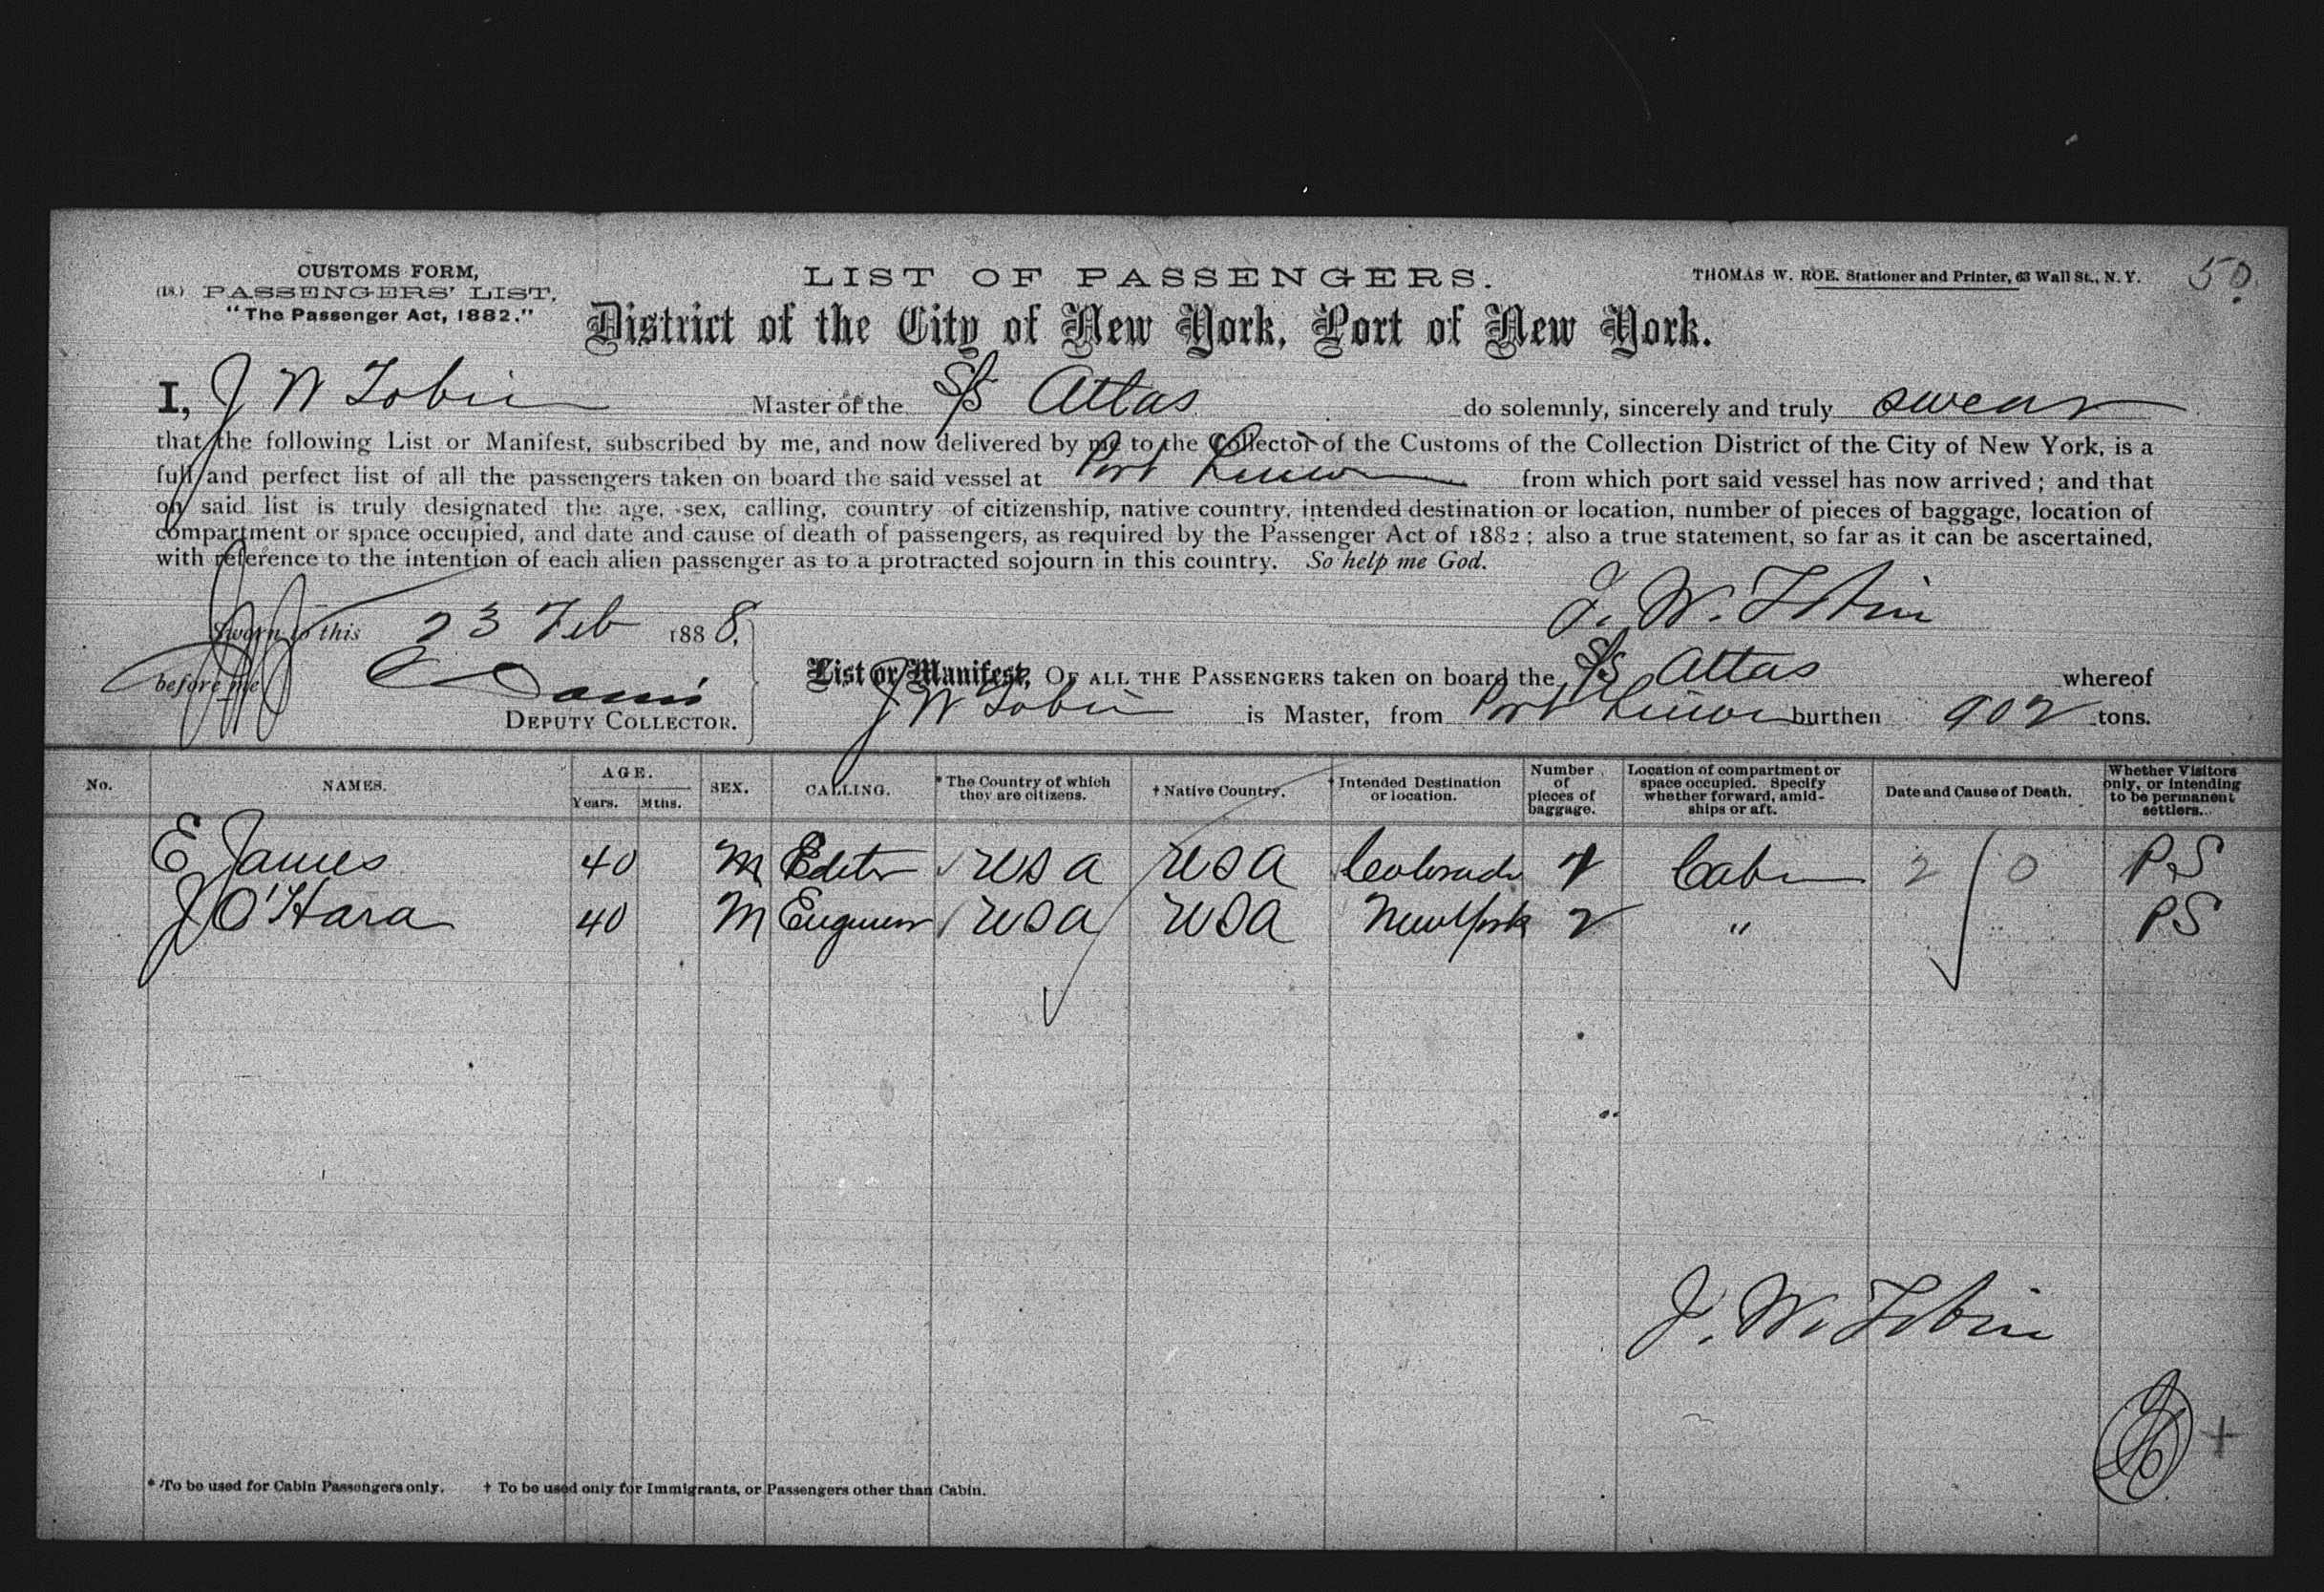 CUSTOMS FORM,
(18.) PASSENGERS' LIST,
"The Passenger Act, 1882."
LIST OF PASSENGERS.
THOMAS W. ROE, Stationer and Printer, 63 Wall St., N. Y.
50
District of the City of New York, Port of New York.
I, J W Tobin Master of the S/S Atlas do solemnly, sincerely and truly swear
that the following List or Manifest, subscribed by me, and now delivered by me to the Collector of the Customs of the Collection District of the City of New York, is a
full and perfect list of all the passengers taken on board the said vessel at Port Limon from which port said vessel has now arrived; and that
on said list is truly designated the age, sex, calling, country of citizenship, native country, intended destination or location, number of pieces of baggage, location of
compartment or space occupied, and date and cause of death of passengers, as required by the Passenger Act of 1882; also a true statement, so far as it can be ascertained,
with reference to the intention of each alien passenger as to a protracted sojourn in this country. So help me God.
J. W. Tobin
Sworn to this 23 Feb 1888.
before me Davis
DEPUTY COLLECTOR.
List or Manifest, OF ALL THE PASSENGERS taken on board the S/S Atlas whereof
J W Tobin is Master, from Port Limon burthen 902 tons.
No. NAMES. AGE. Years. Mths. SEX. CALLING. * The Country of which they are citizens. † Native Country. † Intended Destination or location. Number of pieces of baggage. Location of compartment or space occupied. Specify whether forward, amidships or aft. Date and Cause of Death. Whether Visitors only, or intending to be permanent settlers.
E James 40 M Editor USA USA Colorado Cabin 2 / 0 PS
J O'Hara 40 M Engineer USA USA New York 2 " PS
J. W. Tobin
* To be used for Cabin Passengers only. † To be used only for Immigrants, or Passengers other than Cabin.